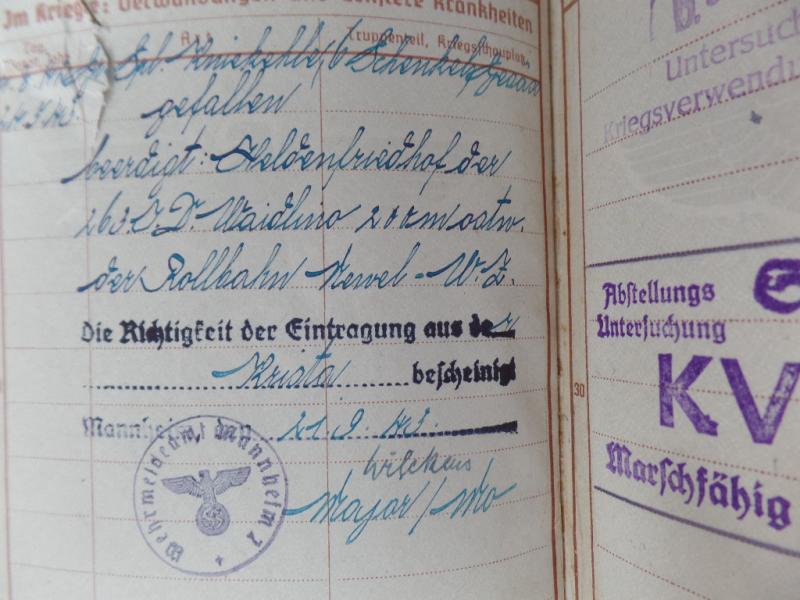 Im Kriege: Verwundungen und ernstere Krankheiten
Tag, Monat, Jahr
Art
Truppenteil, Kriegsschauplatz
Spl. Kniekehle
gefallen
beerdigt: Heldenfriedhof der
263. I. D. Waidlino 200 m ostw.
der Rollbahn Newel - W. Z.
Die Richtigkeit der Eintragung aus der
Krista bescheinigt
Mannheim, den 21. 9. 43.
Wilckens
Major / Mo
Wehrmeldeamt Mannheim 2
Untersuch
Kriegsverwendu
Abstellungs
Untersuchung
30
KV
Marschfähig